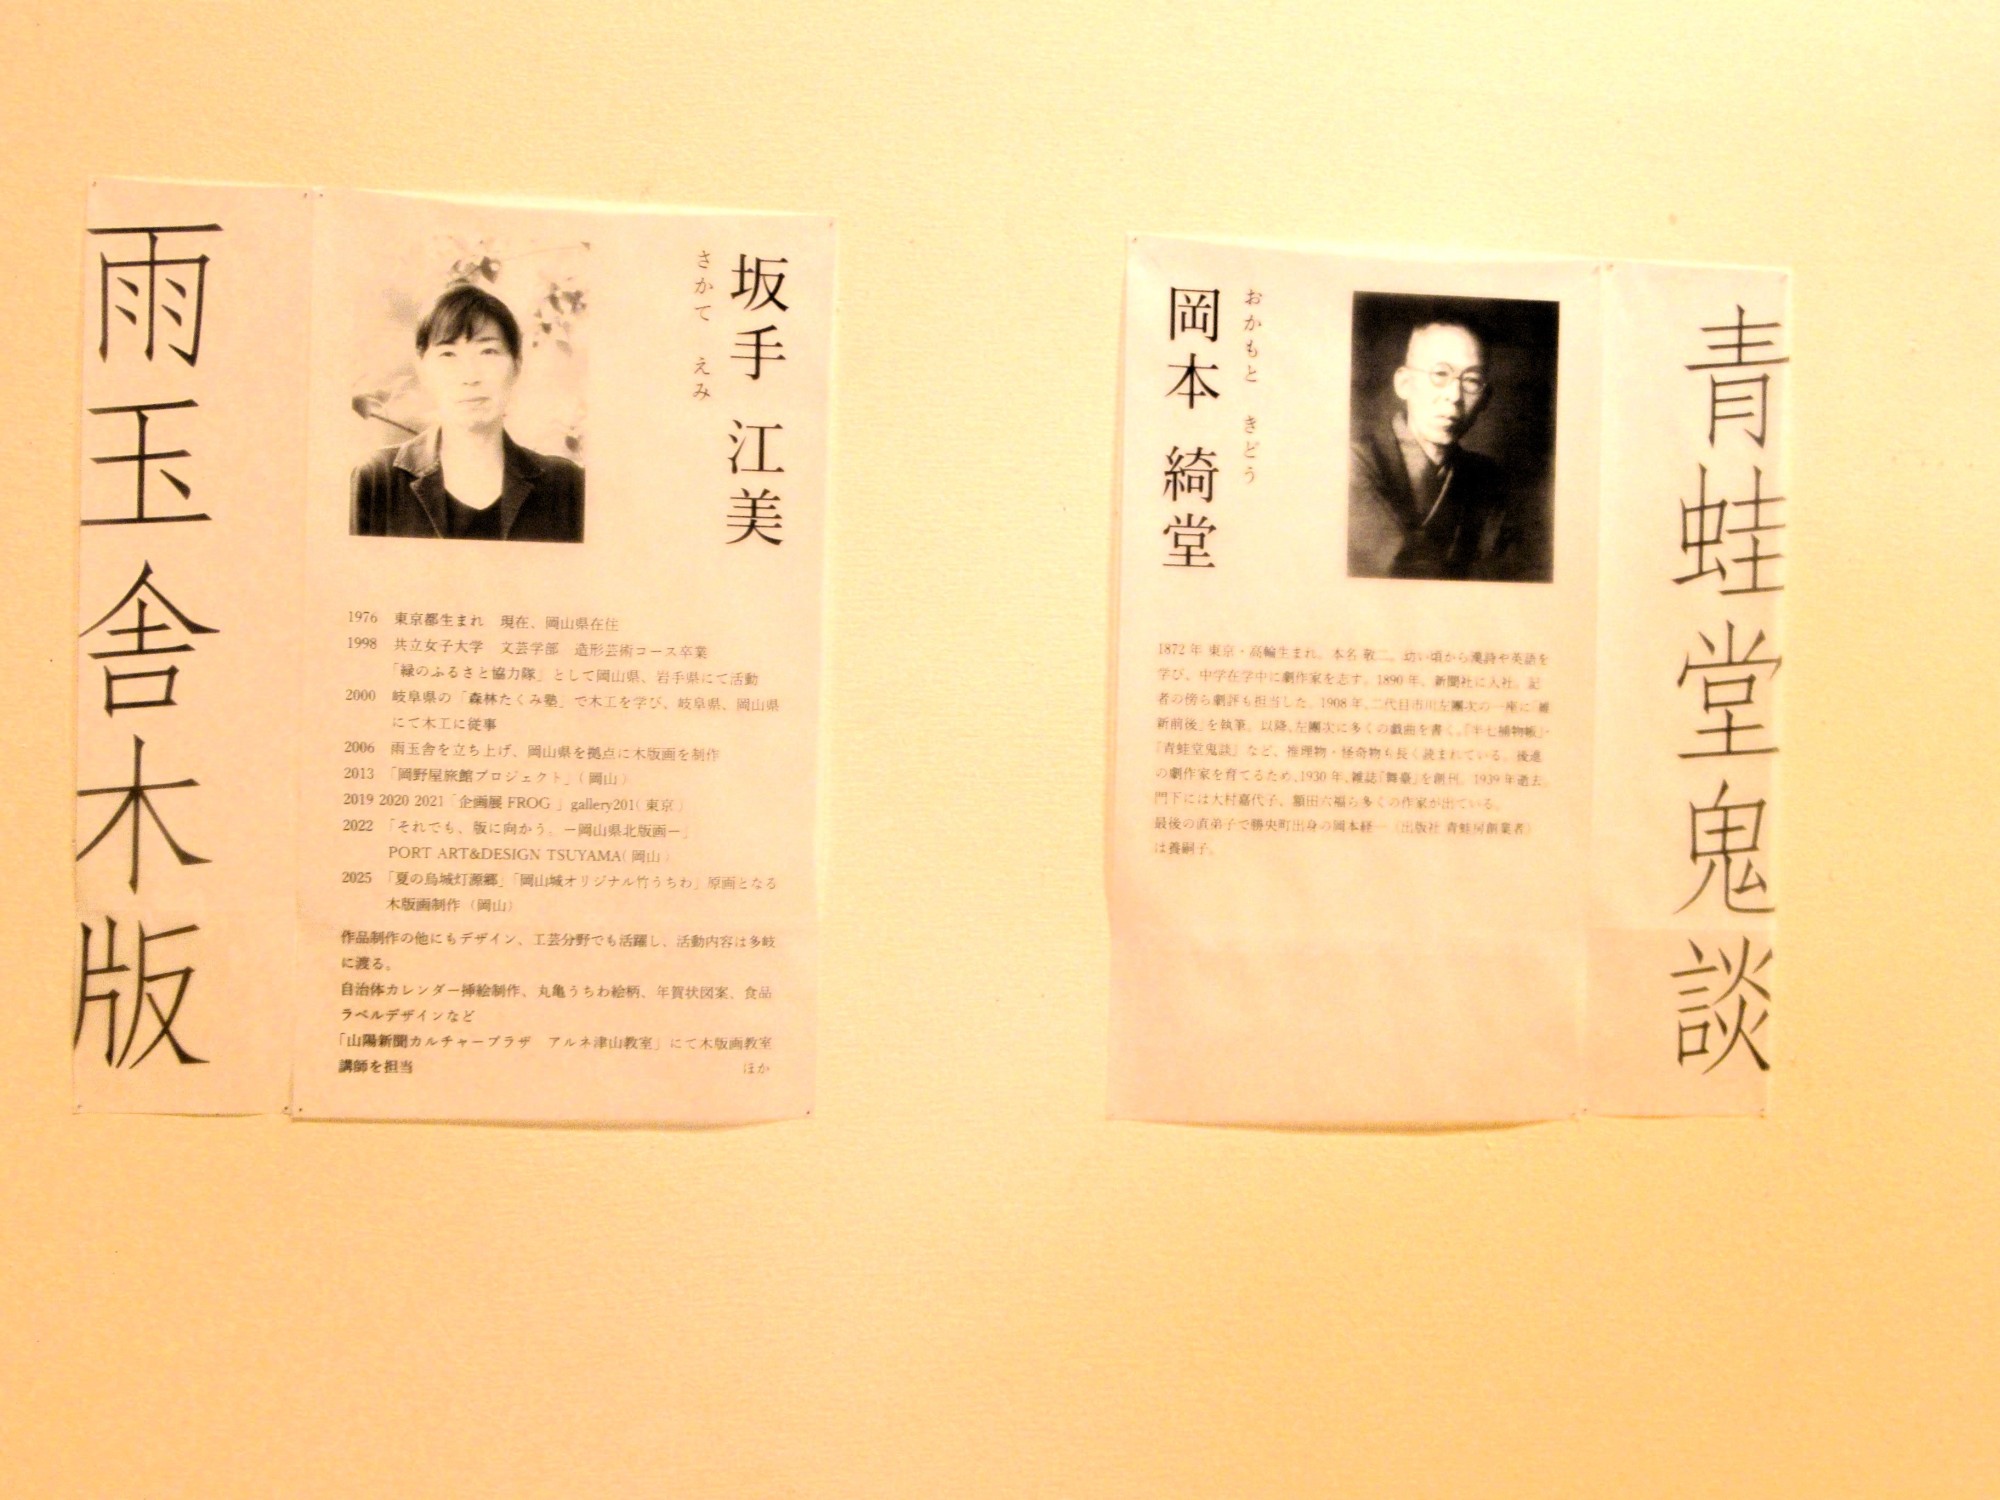 雨玉舎木版
坂手 江美
さかて えみ
1976 東京都生まれ 現在、岡山県在住
1998 共立女子大学 文芸学部 造形芸術コース卒業
「緑のふるさと協力隊」として岡山県、岩手県にて活動
2000 岐阜県の「森林たくみ塾」で木工を学び、岐阜県、岡山県
にて木工に従事
2006 雨玉舎を立ち上げ、岡山県を拠点に木版画を制作
2013 「岡野屋旅館プロジェクト」(岡山)
2019 2020 2021「企画展 FROG 」gallery201(東京)
2022 「それでも、版に向かう。ー岡山県北版画ー」
PORT ART&DESIGN TSUYAMA(岡山)
2025 「夏の烏城灯源郷」「岡山城オリジナル竹うちわ」原画となる
木版画制作(岡山)
作品制作の他にもデザイン、工芸分野でも活躍し、活動内容は多岐
に渡る。
自治体カレンダー挿絵制作、丸亀うちわ絵柄、年賀状図案、食品
ラベルデザインなど
「山陽新聞カルチャープラザ アルネ津山教室」にて木版画教室
講師を担当 ほか
青蛙堂鬼談
岡本 綺堂
おかもと きどう
1872 年 東京・高輪生まれ。本名 敬二。幼い頃から漢詩や英語を
学び、中学在学中に劇作家を志す。1890 年、新聞社に入社。記
者の傍ら劇評も担当した。1908 年、二代目市川左團次の一座に「維
新前後」を執筆。以降、左團次に多くの戯曲を書く。『半七捕物帳』・
『青蛙堂鬼談』など、推理物・怪奇物も長く読まれている。後進
の劇作家を育てるため、1930 年、雑誌『舞臺』を創刊。1939 年逝去。
門下には大村嘉代子、額田六福ら多くの作家が出ている。
最後の直弟子で勝央町出身の岡本経一(出版社 青蛙房創業者)
は養嗣子。